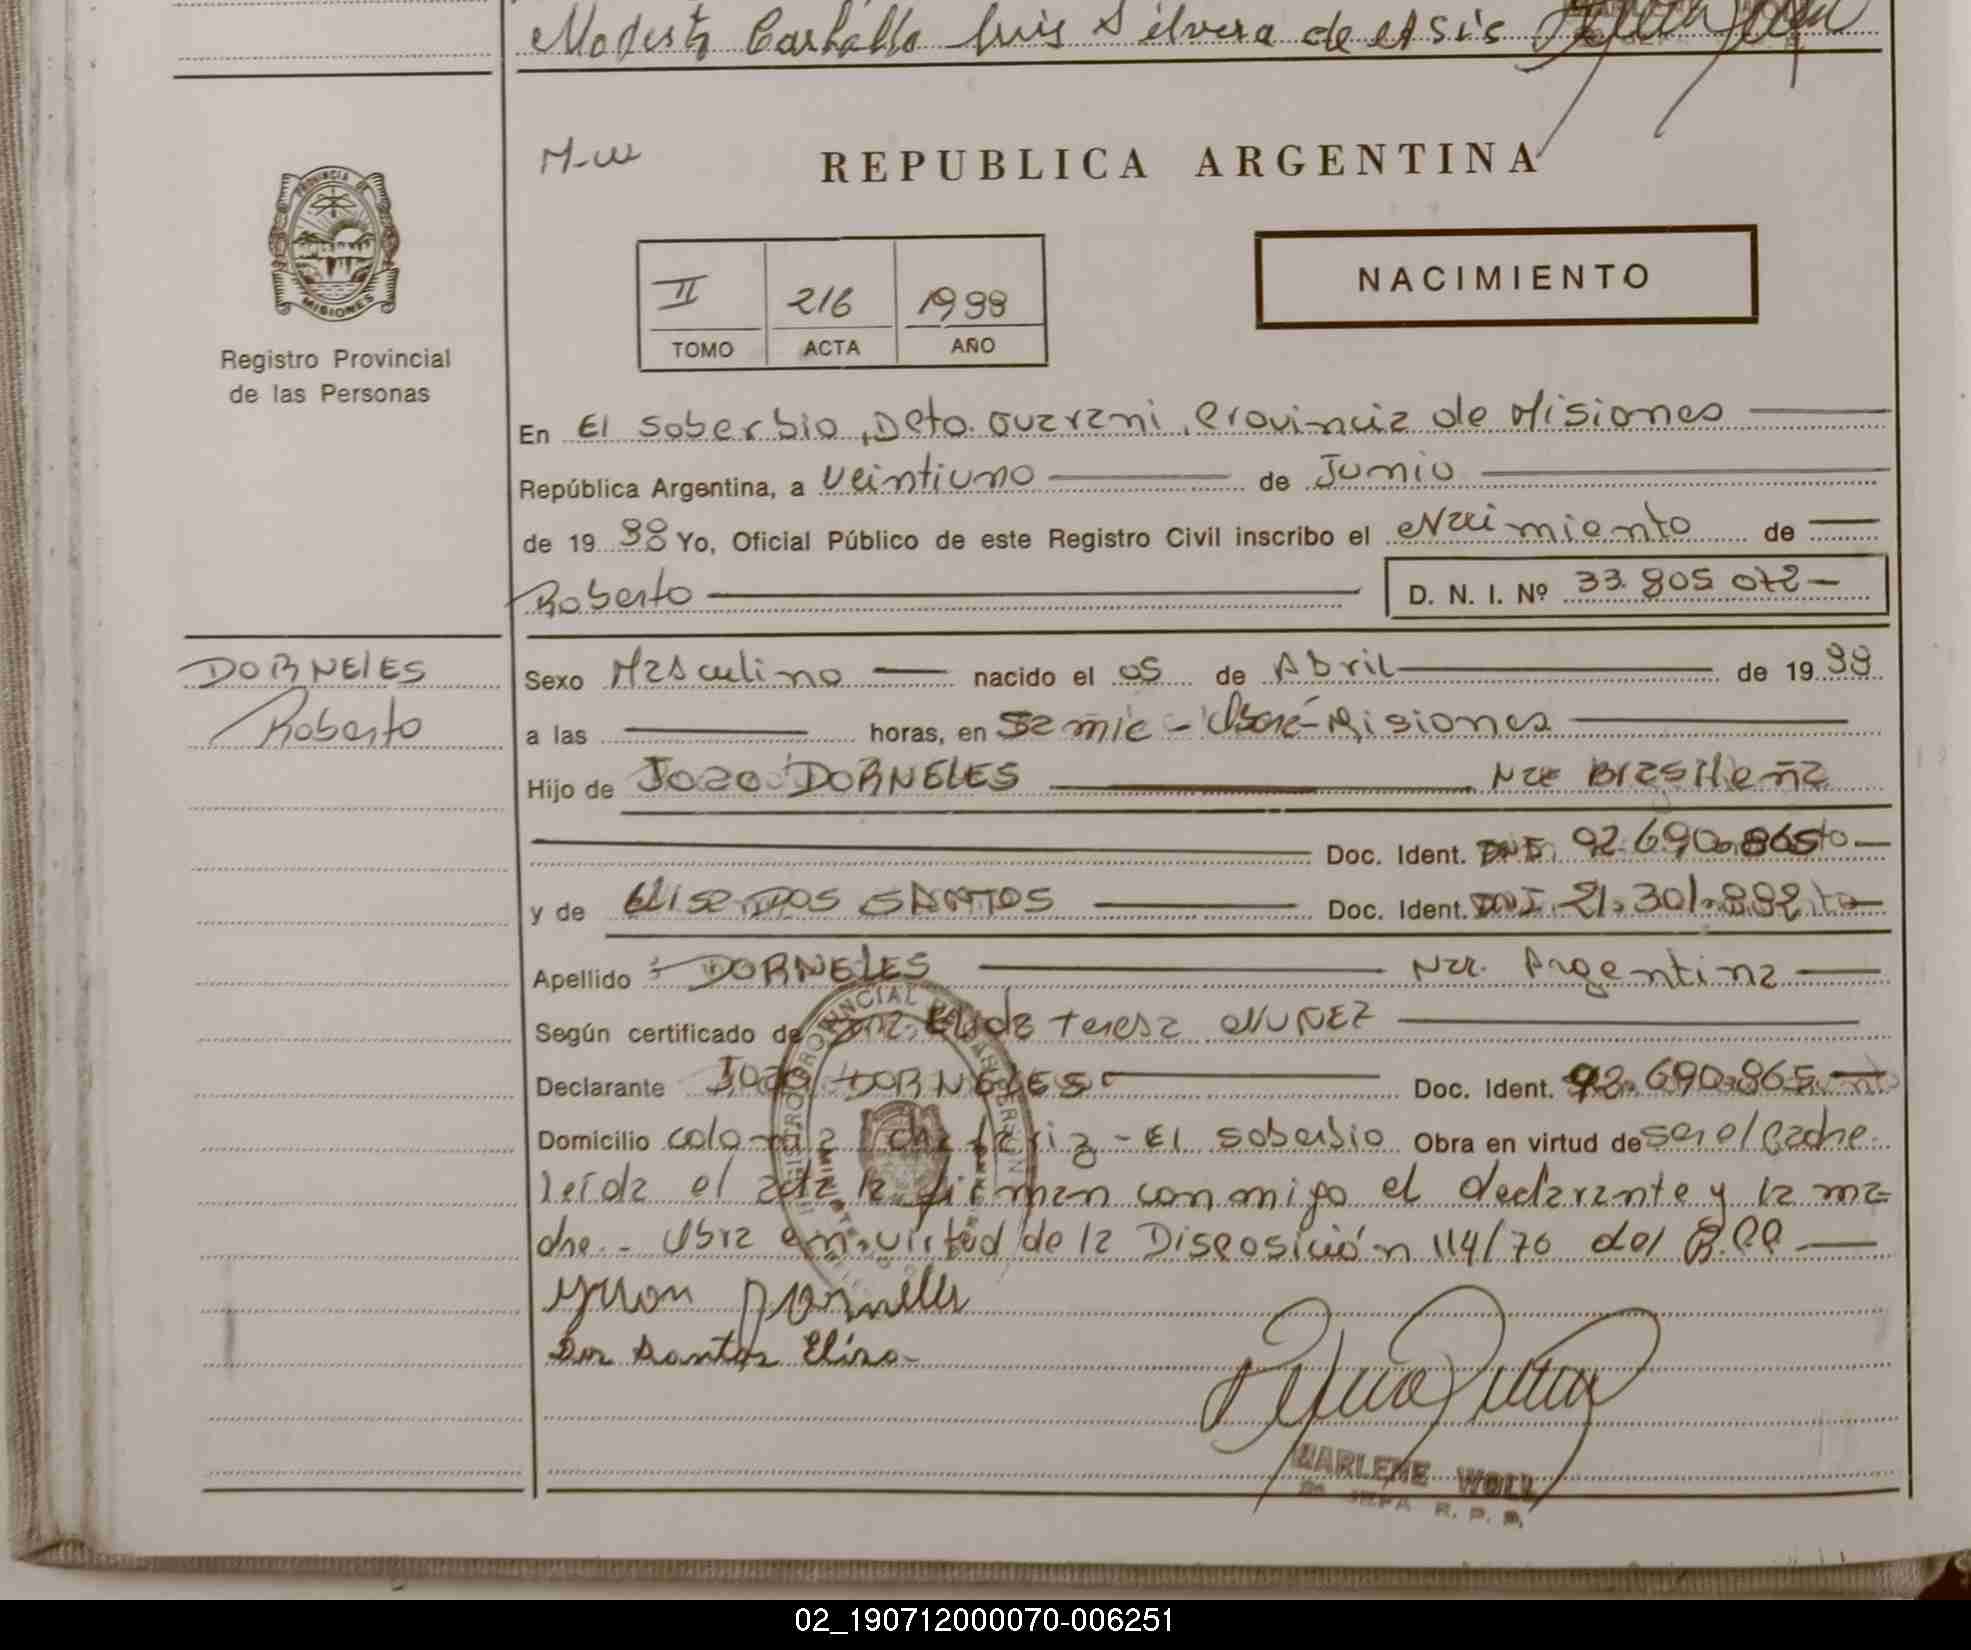 Modesto Carballo Luis Silvera de Asis
M-W
REPUBLICA ARGENTINA
PROVINCIA DE
MISIONES
Registro Provincial
de las Personas
II 216 1988
TOMO ACTA AÑO
NACIMIENTO
En El Soberbio, Dpto. Guarani, Provincia de Misiones
República Argentina, a Veintiuno de Junio
de 19 88 Yo, Oficial Público de este Registro Civil inscribo el Nacimiento de
Roberto D. N. I. Nº 33.805.072
DORNELES
Roberto
Sexo Masculino nacido el 05 de Abril de 19 88
a las horas, en Misiones
Hijo de Joao DORNELES Nac Brasileña
Doc. Ident. DNI. 92.690.865
y de Elisa DOS SANTOS Doc. Ident. DNI. 21.301.882
Apellido DORNELES Nac. Argentina
Según certificado de Elida Teresa NUÑEZ
Declarante Joao DORNELES Doc. Ident. 92.690.865
Domicilio Colonia - El Soberbio Obra en virtud de ser el Padre.
leída el acta la firman conmigo el declarante y la ma=
dre.- Obra en virtud de la Disposición 114/76 del R.P.P
Dos Santos Elisa
MARLENE WOLL
JEFA R. P. P.
02_190712000070-006251